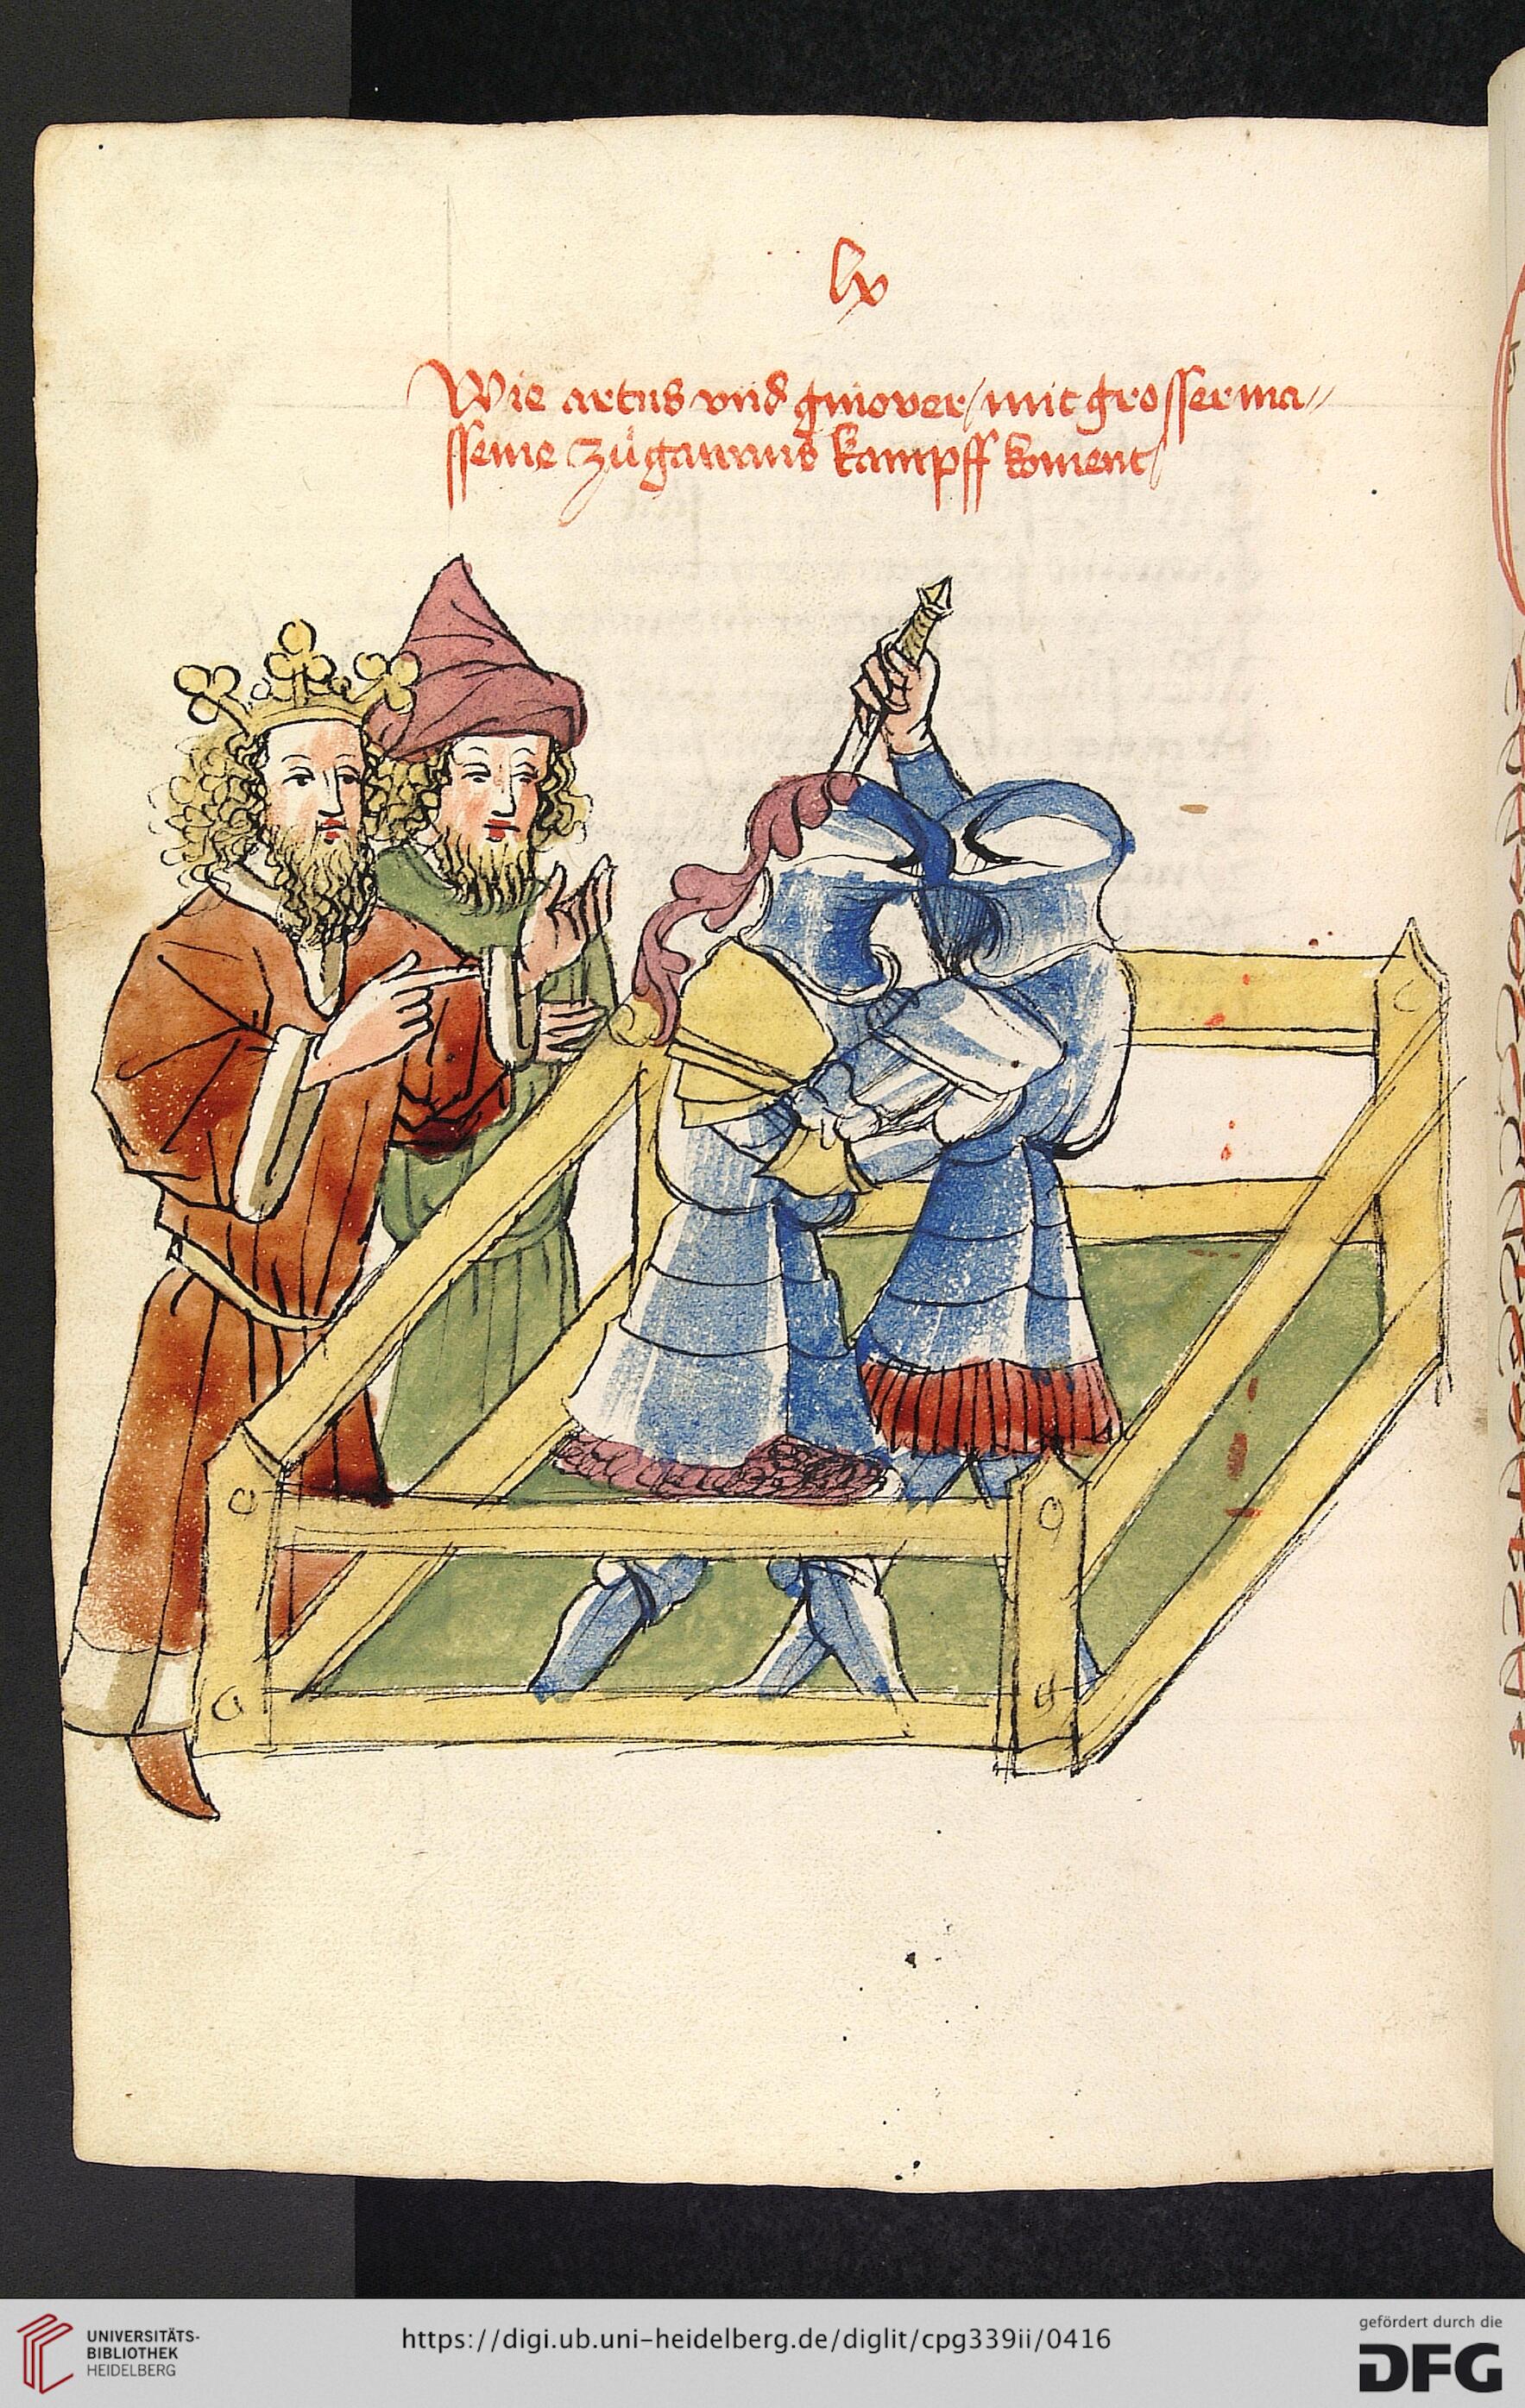 lx
Wie artus vnd ginover / mit grosser ma〃
ssenie zů gawans kampff koment /
UNIVERSITÄTS-
BIBLIOTHEK
HEIDELBERG
https://digi.ub.uni-heidelberg.de/diglit/cpg339ii/0416
gefördert durch die
DFG